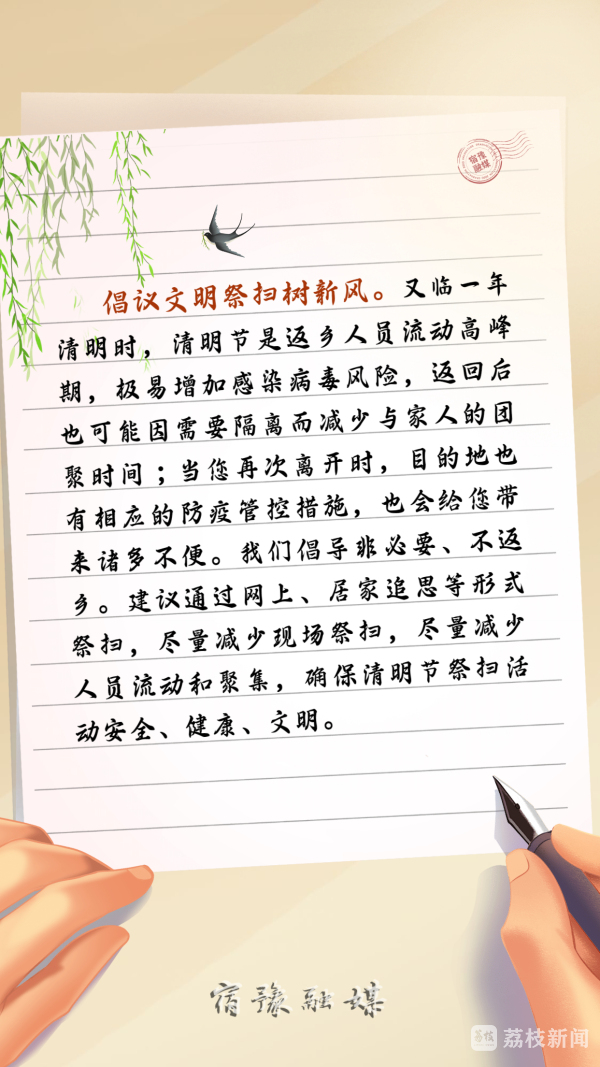 宿豫
融媒
倡议文明祭扫树新风。又临一年
清明时，清明节是返乡人员流动高峰
期，极易增加感染病毒风险，返回后
也可能因需要隔离而减少与家人的团
聚时间；当您再次离开时，目的地也
有相应的防疫管控措施，也会给您带
来诸多不便。我们倡导非必要、不返
乡。建议通过网上、居家追思等形式
祭扫，尽量减少现场祭扫，尽量减少
人员流动和聚集，确保清明节祭扫活
动安全、健康、文明。
宿豫融媒
荔枝 荔枝新闻